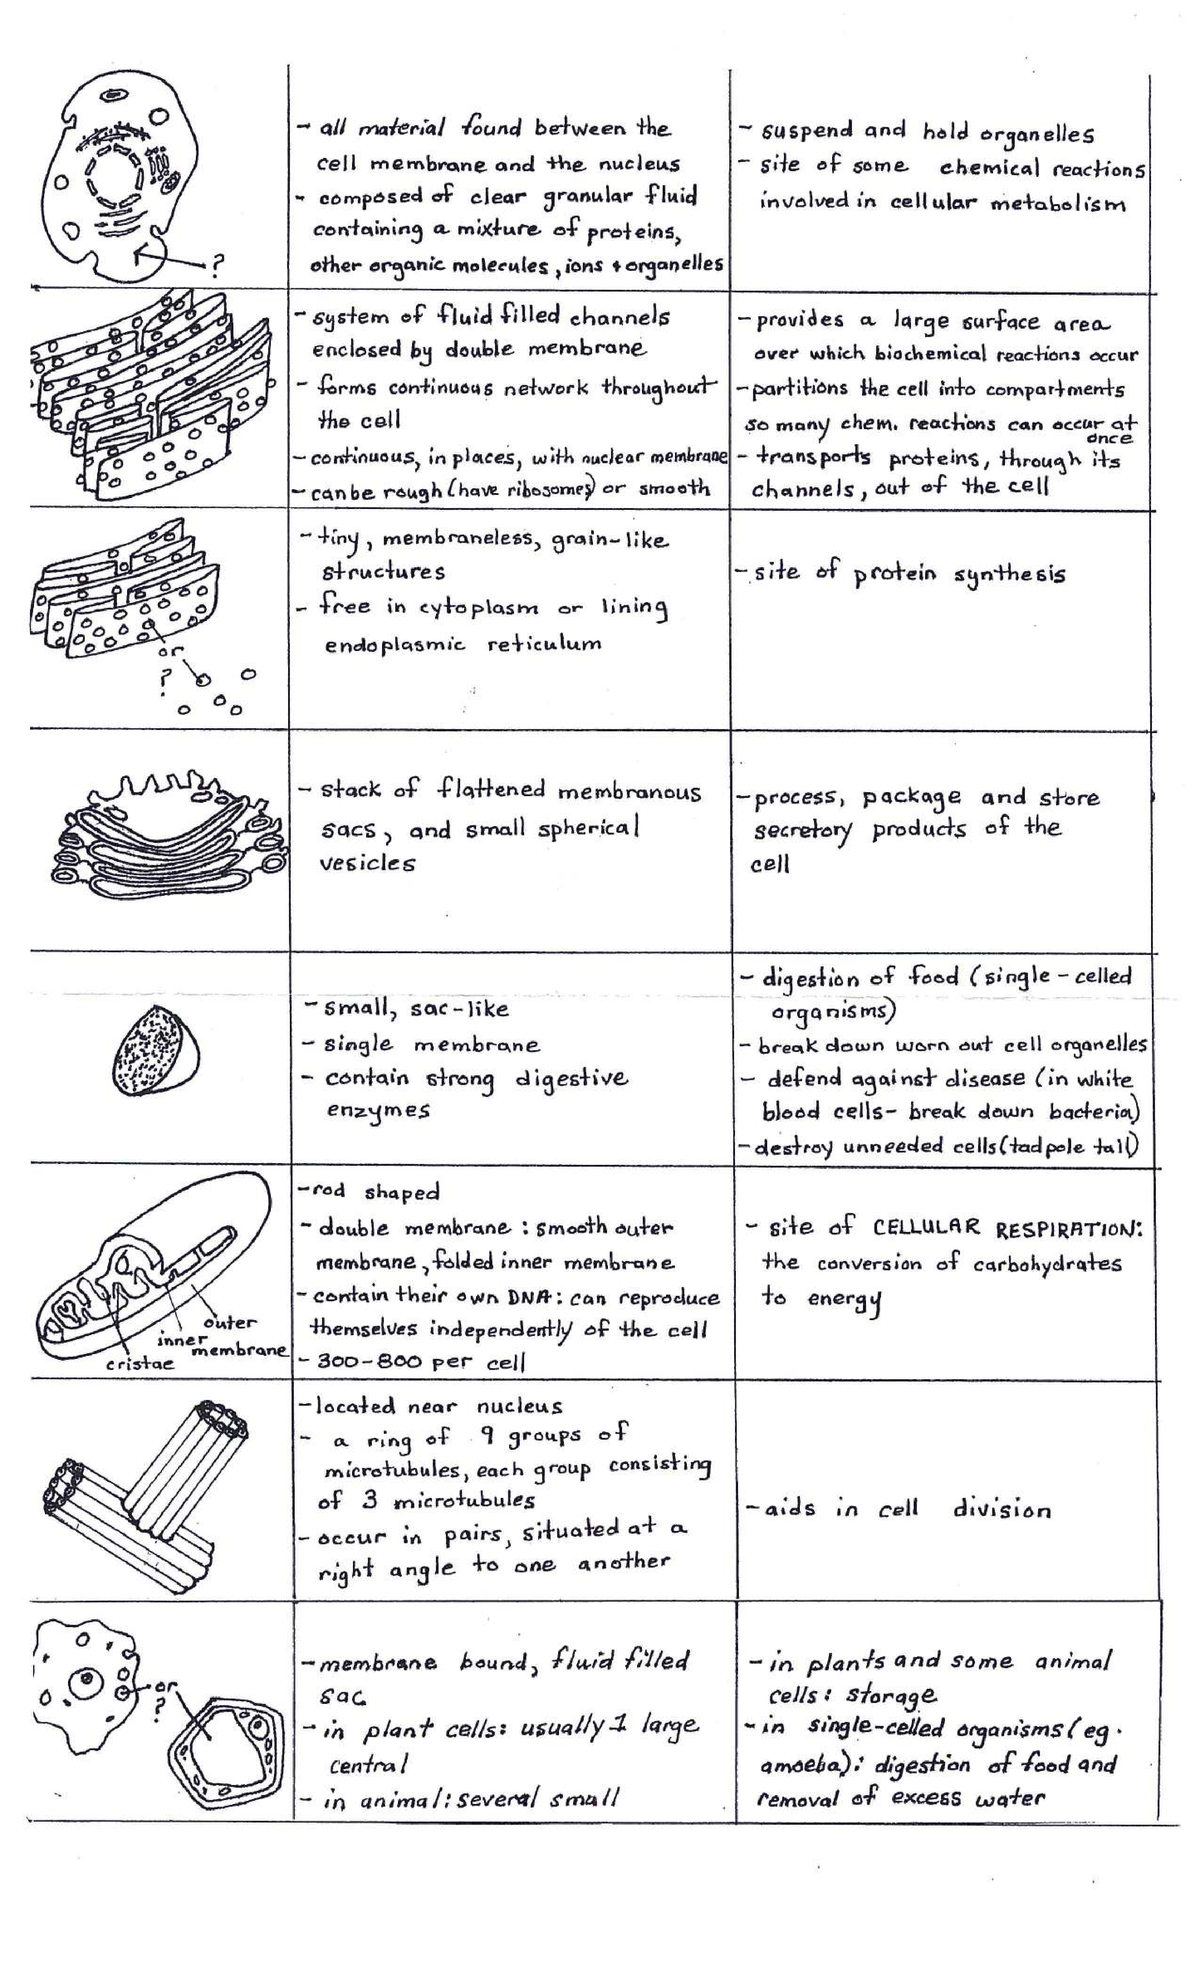 - all material found between the
cell membrane and the nucleus
- composed of clear granular fluid
containing a mixture of proteins,
other organic molecules, ions + organelles
- suspend and hold organelles
- site of some chemical reactions
involved in cellular metabolism
?
- system of fluid filled channels
enclosed by double membrane
- forms continuous network throughout
the cell
- continuous, in places, with nuclear membrane
- can be rough (have ribosomes) or smooth
- provides a large surface area
over which biochemical reactions occur
- partitions the cell into compartments
so many chem. reactions can occur at
once
- transports proteins, through its
channels, out of the cell
or
?
- tiny, membraneless, grain-like
structures
- free in cytoplasm or lining
endoplasmic reticulum
- site of protein synthesis
- stack of flattened membranous
sacs, and small spherical
vesicles
- process, package and store
secretory products of the
cell
- small, sac-like
- single membrane
- contain strong digestive
enzymes
- digestion of food (single-celled
organisms)
- break down worn out cell organelles
- defend against disease (in white
blood cells - break down bacteria)
- destroy unneeded cells (tadpole tail)
outer
inner membrane
cristae
- rod shaped
- double membrane: smooth outer
membrane, folded inner membrane
- contain their own DNA: can reproduce
themselves independently of the cell
- 300-800 per cell
- site of CELLULAR RESPIRATION:
the conversion of carbohydrates
to energy
- located near nucleus
- a ring of 9 groups of
microtubules, each group consisting
of 3 microtubules
- occur in pairs, situated at a
right angle to one another
- aids in cell division
or
?
- membrane bound, fluid filled
sac
- in plant cells: usually 1 large
central
- in animal: several small
- in plants and some animal
cells: storage
- in single-celled organisms (eg.
amoeba): digestion of food and
removal of excess water